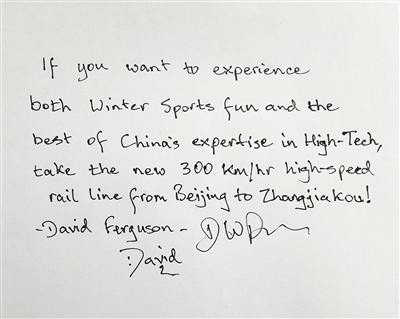 If you want to experience
both Winter Sports fun and the
best of China's expertise in High-Tech,
take the new 300 km/hr high-speed
rail line from Beijing to Zhangjiakou!
-David Ferguson-
David